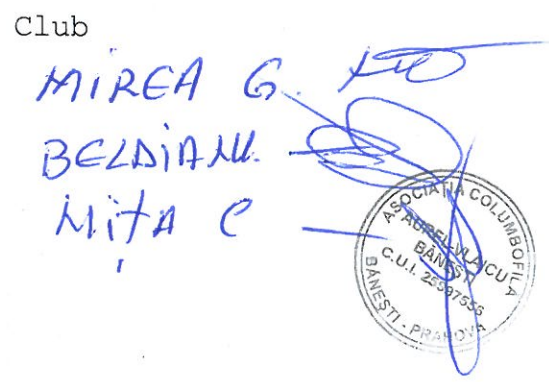 Club
MIREA G.
BELDIANU.
MIȚA C
ASOCIAȚIA COLUMBOFILA
AUREL VLAICU
BĂNEȘTI
C.U.I. 25597556
BĂNEȘTI - PRAHOVA